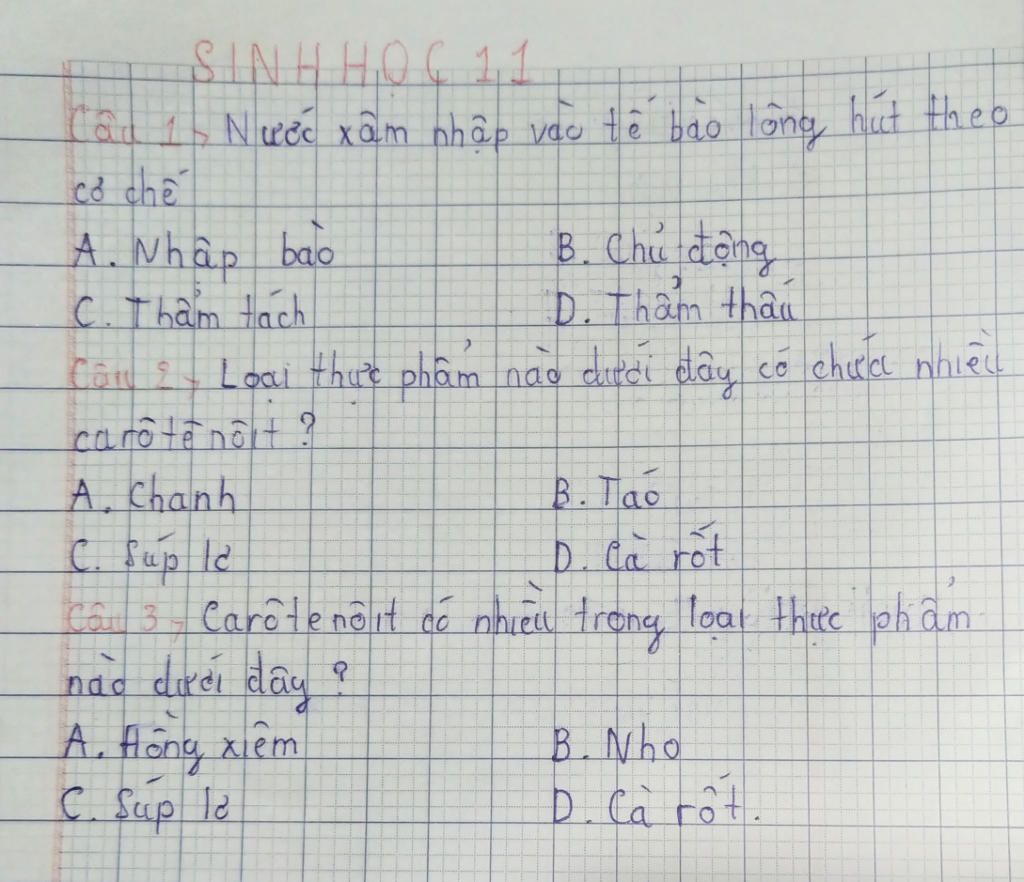 SINH HỌC 11
Câu 1, Nước xâm nhập vào tế bào lông hút theo
cơ chế
A. Nhập bào B. Chủ động
C. Thẩm tách D. Thẩm thấu
Câu 2, Loại thực phẩm nào dưới đây có chứa nhiều
carôtênôit ?
A. Chanh B. Táo
C. Súp lơ D. Cà rốt
Câu 3, Carôtenôit có nhiều trong loại thực phẩm
nào dưới đây ?
A. Hồng xiêm B. Nho
C. Súp lơ D. Cà rốt.